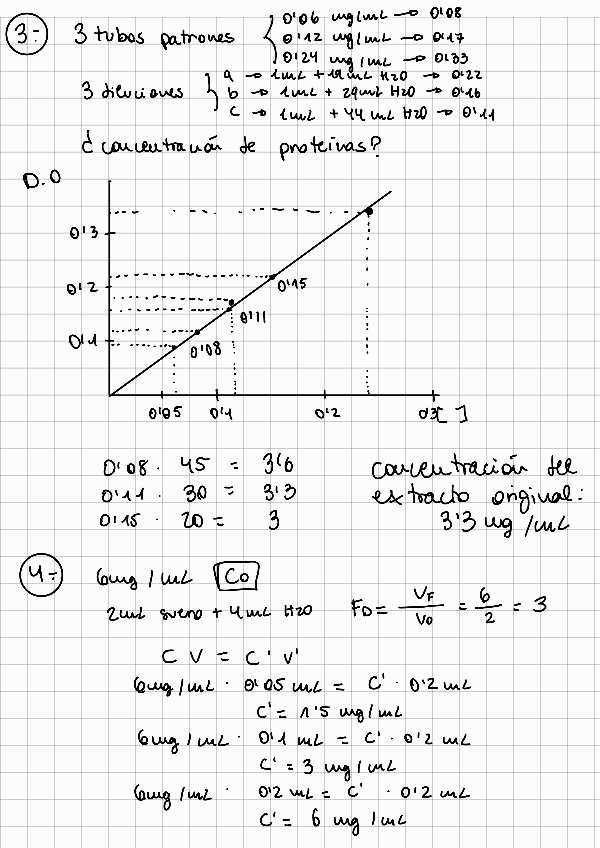 3:- 3 tubos patrones { 0'06 mg/mL → 0'08
0'12 mg/mL → 0'17
0'24 mg/mL → 0'33
3 diluciones { a → 1mL + 19mL H2O → 0'22
b → 1mL + 29mL H2O → 0'16
c → 1mL + 44mL H2O → 0'11
¿concentración de proteínas?
D.O
0'3
0'2
0'1
0'15
0'11
0'08
0'05 0'1 0'2 0'3 [ ]
0'08 · 45 = 3'6
0'11 · 30 = 3'3
0'15 · 20 = 3
concentración del
extracto original:
3'3 mg/mL
4:- 6mg/mL Co
2mL suero + 4mL H2O FD = VF/V0 = 6/2 = 3
C V = C' V'
6mg/mL · 0'05 mL = C' · 0'2 mL
C' = 1'5 mg/mL
6mg/mL · 0'1 mL = C' · 0'2 mL
C' = 3 mg/mL
6mg/mL · 0'2 mL = C' · 0'2 mL
C' = 6 mg/mL